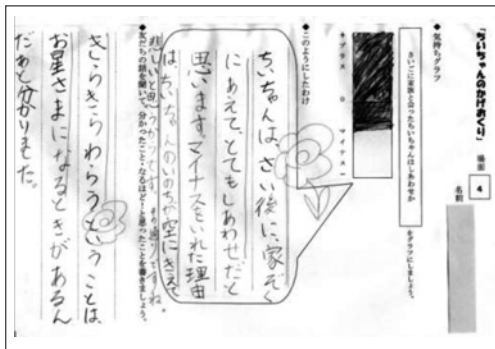 「ちいちゃんのかげおくり」 場面 4
名前
◆気持ちグラフ
さいごに家族と会ったちいちゃんはしあわせか をグラフにしましょう。
＋プラス 0 マイナスー
◆このようにしたわけ
ちいちゃんは、さい後に、家ぞく
にあえて、とてもしあわせだと
思います。マイナスをいれた理由
は、ちいちゃんのいのちが空にきえて
悲しいと思うからです。
◆友だちの話を聞いて、分かったこと・なるほど!と思ったことを書きましょう。
きらきらわらうということは、
お星さまになるときがあるん
だなと分かりました。